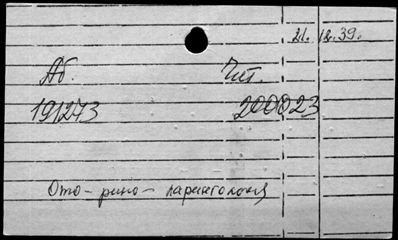 21.12.39.
Аб. Чит.
191273 200023
Ото-рино-ларингология